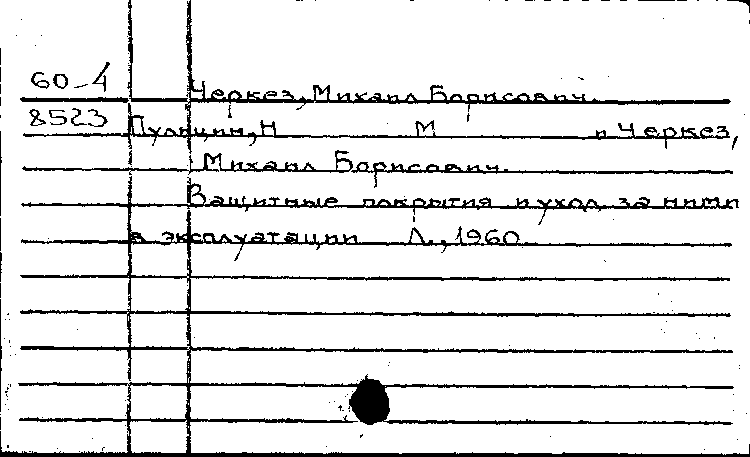 60-4 Черкез, Михаил Борисович.
8523 Пулицин, Н М и Черкез,
Михаил Борисович.
Защитные покрытия и уход за ними
в эксплуатации Л., 1960